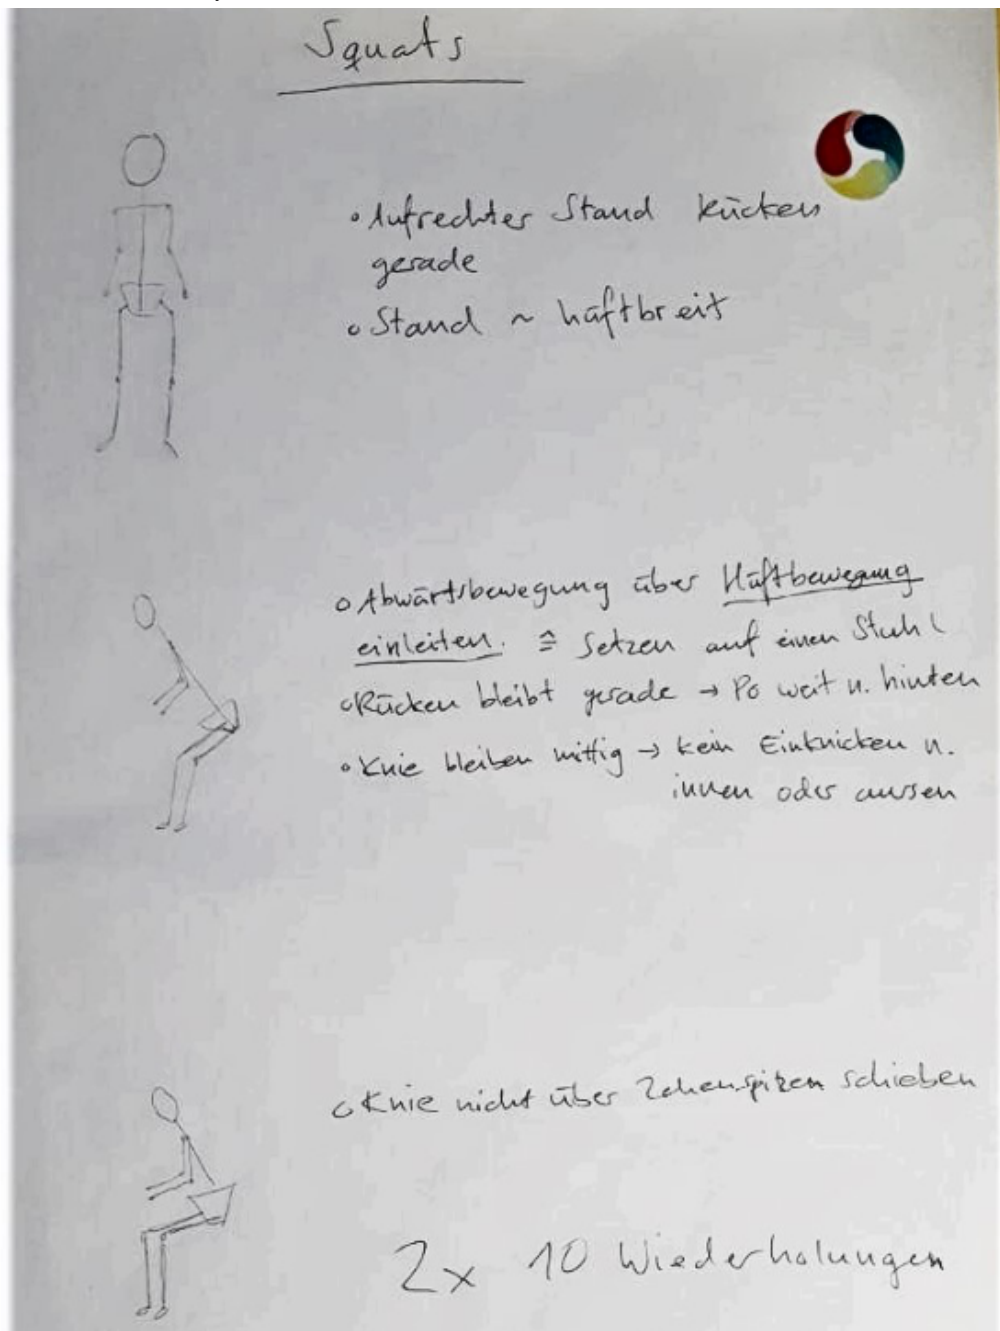 Squats
• Aufrechter Stand Rücken
gerade
• Stand ~ hüftbreit
• Abwärtsbewegung über Hüftbewegung
einleiten. ≙ Setzen auf einen Stuhl
• Rücken bleibt gerade → Po weit n. hinten
• Knie bleiben mittig → kein Einknicken n.
innen oder aussen
• Knie nicht über Zehenspitzen schieben
2x 10 Wiederholungen